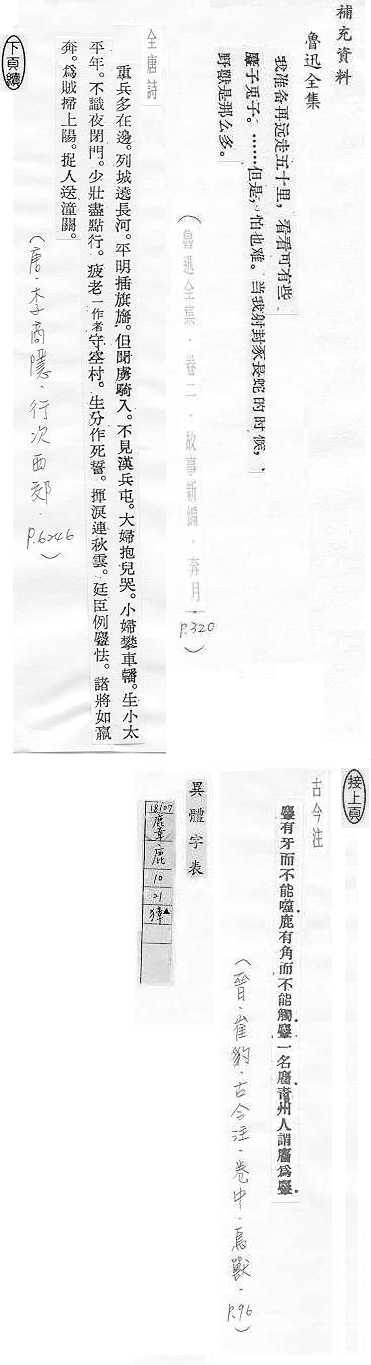 補充資料
魯迅全集
我准备再远走五十里，看看可有些
麞子兎子。……但是，怕也难。当我射封豕長蛇的时候，
野獸是那么多。
（魯迅全集．卷二．故事新編．奔月．P.320）
全唐詩
重兵多在邊。列城遶長河。平明插旗旛。但聞虜騎入。不見漢兵屯。大婦抱兒哭。小婦攀車轓。生小太
平年。不識夜閉門。少壯盡點行。疲老一作者守空村。生分作死誓。揮淚連秋雲。廷臣例麞怯。諸將如羸
奔。爲賊掃上陽。捉人送潼關。
（唐．李商隱．行次西郊．P.6246）
下頁續
接上頁
古今注
麞有牙而不能噬鹿有角而不能觸麞一名麕青州人謂麕爲麞
（晉．崔豹．古今注．卷中．鳥獸．P.96）
異體字表
18107
麞
鹿
10
21
獐▲